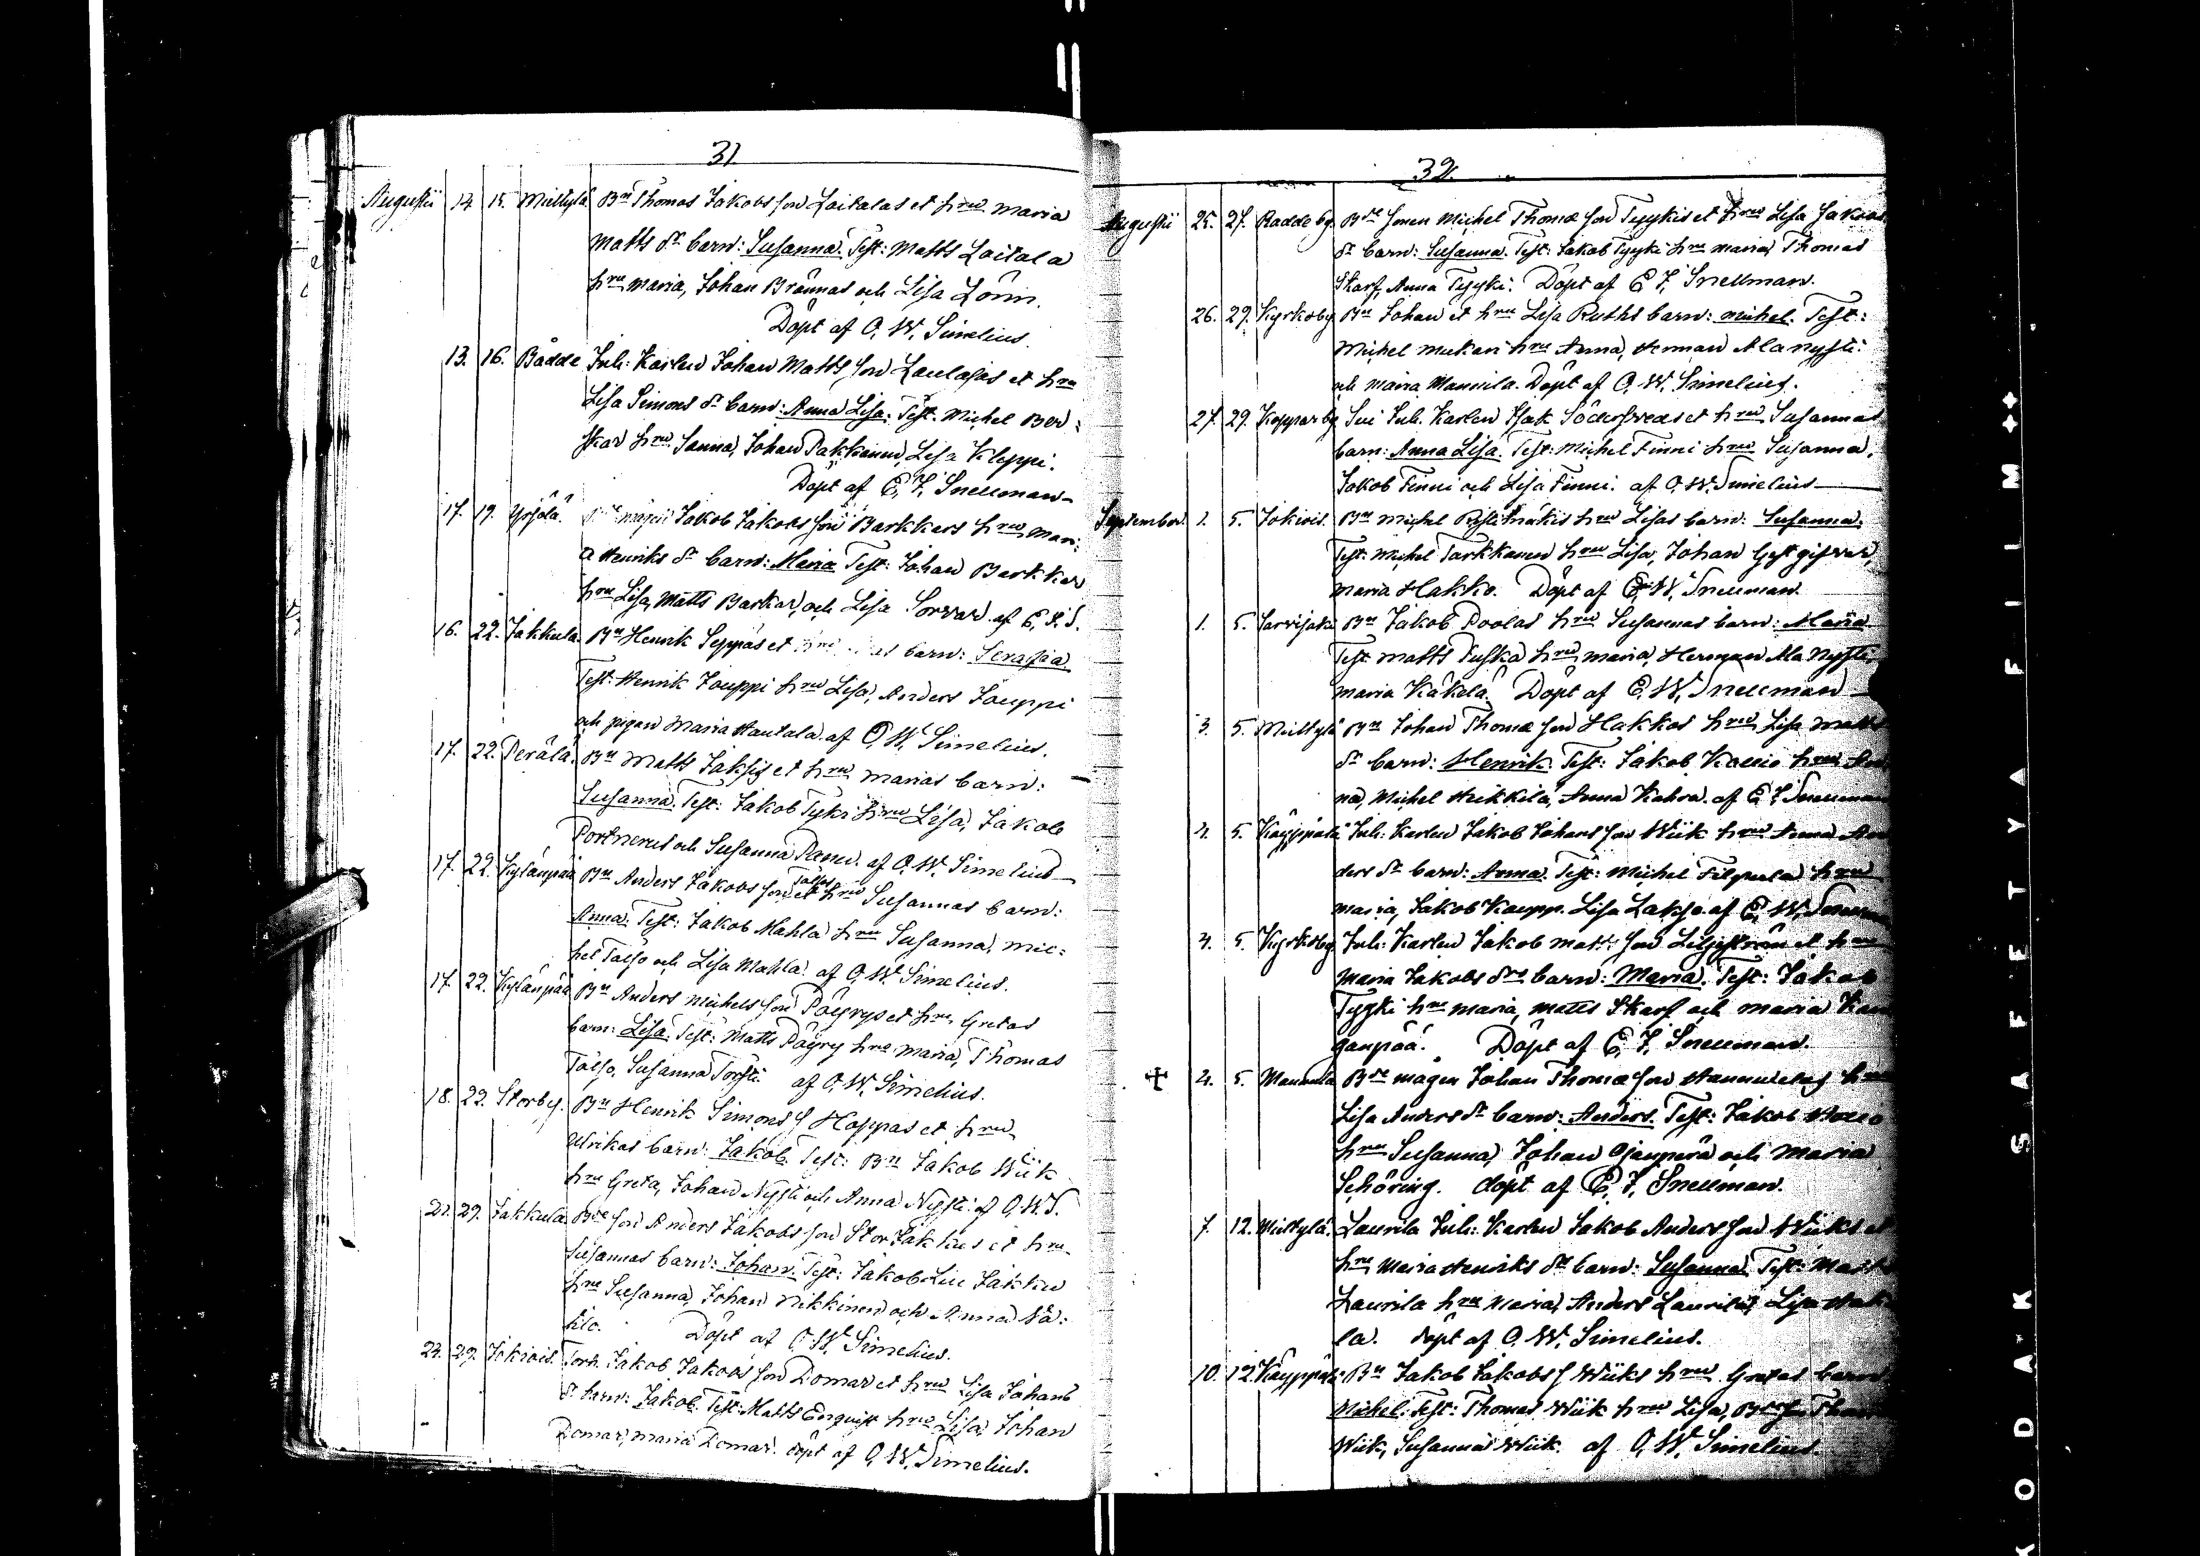 31.
Augustii 14. 15. Miettylä Bn Thomas Jakobs son Laitalas et hru Maria
Matts dr barn: Susanna. Test: Matts Laitala
hru Maria, Johan Brännas och Lisa Lönn.
Döpt af O. W. Simelius.
13. 16. Bådde Inh: Karlen Johan Matts son et hru
Lisa Simons dr barn: Anna Lisa. Test. Michel Ber:
skar hru Sanna, Johan Pakkanen, Lisa Kleppi.
Döpt af E. F. Snellman
17. 19. Yrjälä. mågen Jakob Jakobs son Barkkars hru Mari:
a Henriks dr barn: Maria Test: Johan Barkkar
hru Lisa, Matts Barkar, och Lisa Sorvar. af E. F. S.
16. 22. Jakkula. Bn Henrik Seppäs et hru barn: Serafia.
Test: Henrik Jouppi hru Lisa, Anders Jouppi
och pigan Maria Hautala. af O. W. Simelius.
17. 22. Perälä. Bn Matts et hru Marias barn:
Susanna. Test: Jakob Tyki hru Lisa, Jakob
och Susanna af O. W. Simelius
17. 22. Kylänpää Bn Anders Jakobs son Talsos et hru Susannas barn:
Anna. Test: Jakob Mahla hru Susanna, Mic:
hel Talso och Lisa Mahla. af O. W. Simelius.
17. 22. Kylänpää Bn Anders Michels son Pöyrys et hru Gretas
barn: Lisa. Test: Matts Pöyry hru Maria, Thomas
Talso, Susanna Torsti. af O. W. Simelius.
18. 22. Storby. Bn Henrik Simons S Hoppas et hru
Ulrikas barn: Jakob. Test: Bn Jakob Wiik
hru Greta, Johan Nysti och Anna Nysti. af O. W. S.
29. Jakkula. Bde son Anders Jakobs son Stor Jakkus et hru
Susannas barn: Johan. Test: Jakob Lill Jakku
hru Susanna, Johan Nikkinen och Anna
Döpt af O. W. Simelius.
24. 29. Jokivis. Torp. Jakob Jakobs son Domar et hru Lisa Johans
dr barn: Jakob. Test: Matts Enquist hru Lisa Johan
Domar, Maria Domar. döpt af O. W. Simelius.
32.
Augustii 25. 27. Radde by. Bde sonen Michel Thomæ son Tyykis et hru Lisa Jakobs
dr barn: Susanna. Test: Jakob Tyyki hru Maria, Thomas
Skarf, Anna Tyyki. Döpt af E. F. Snellman.
26. 29. Kyrkoby. Bn Johan et hru Lisa Ruths barn: Michel. Test:
Michel hru Anna, Herman Ala nysti
och Maria Mannila. Döpt af O. W. Simelius.
27. 29. Kopparby Inh. Karlen Isak et hru Susannas
barn: Anna Lisa. Test: Michel Finni hru Susanna,
Jakob Finni och Lisa Finni. af O. W. Simelius
September. 1. 5. Jokivis. Bn Michel hru Lisas barn: Susanna.
Test: Michel Tarkkanen hru Lisa, Johan Gästgifvar,
Maria Hakko. Döpt af E. W. Snellman.
1. 5. Sarvijoki Bn Jakob Poolas hru Susannas barn: Maria
Test: Matts Puska hru Maria, Herman Ala Nysti,
Maria Käkelä. Döpt af E. W. Snellman
3. 5. Miettylä Bn Johan Thomæ son Hakkos hru Lisa Matts
dr barn: Henrik. Test: Jakob Kallio hru
na, Michel Heikkilä, Anna Kahra. af E. F. Snellman
2. 5. Käyppälä Inh: Karlen Jakob Johans son Wiik hru Anna An
ders dr barn: Anna. Test: Michel Filppula hru
Maria, Jakob Kaupp. Lisa af E. W. Snellman
4. 5. Kyrkoby. Inh: Karlen Jakob Matts son Liljeström et hru
Maria Jakobs drs barn: Maria. Test: Jakob
Tyyki hru Maria, Matts Skarf och Maria Kan
ganpää. Döpt af E. F. Snellman.
+ 2. 5. Mannila Bde mågen Johan Thomæ son hru
Lisa Anders dr barn: Anders. Test: Jakob
hru Susanna, Johan Ojanperä och Maria
Schöring. döpt af E. F. Snellman.
7. 12. Miettylä. Laurila Inh: Karlen Jakob Anders son Wiiks et
hru Maria Henriks dr barn: Susanna. Test: Matts
Laurila hru Maria, Anders Laurila, Lisa
la. döpt af O. W. Simelius.
10. 12. Käyppälä Bn Jakob Jakobs S Wiiks hru Gretas barn
Michel. Test: Thomas Wiik hru Lisa,
Wiik, Susanna Wiik. af O. W. Simelius.
KODAK SAFETY A FILM